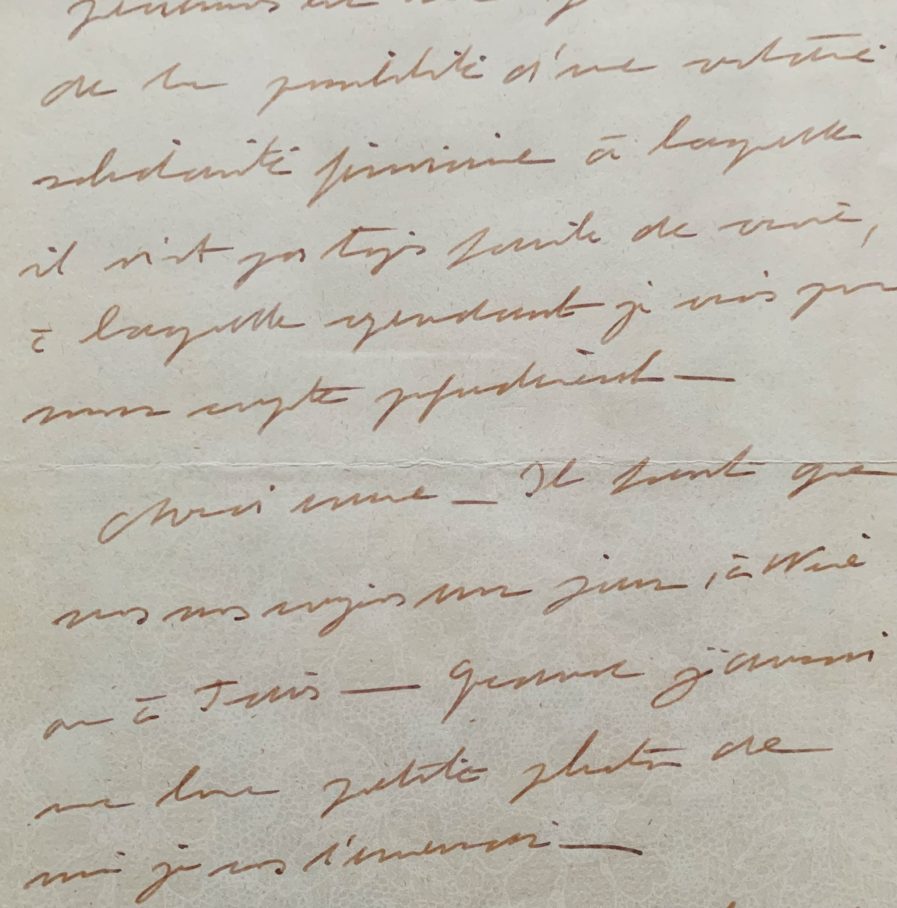 de la possibilité d'une
solidarité féminine à laquelle
il n'est pas tjrs facile de croire,
à laquelle cependant je crois pour
mon compte profondément —
chère amie — Il faut que
nous nous voyions un jour, à
ou à Paris — Quand j'aurai
une bonne petite photo de
moi je vous l'enverrai —